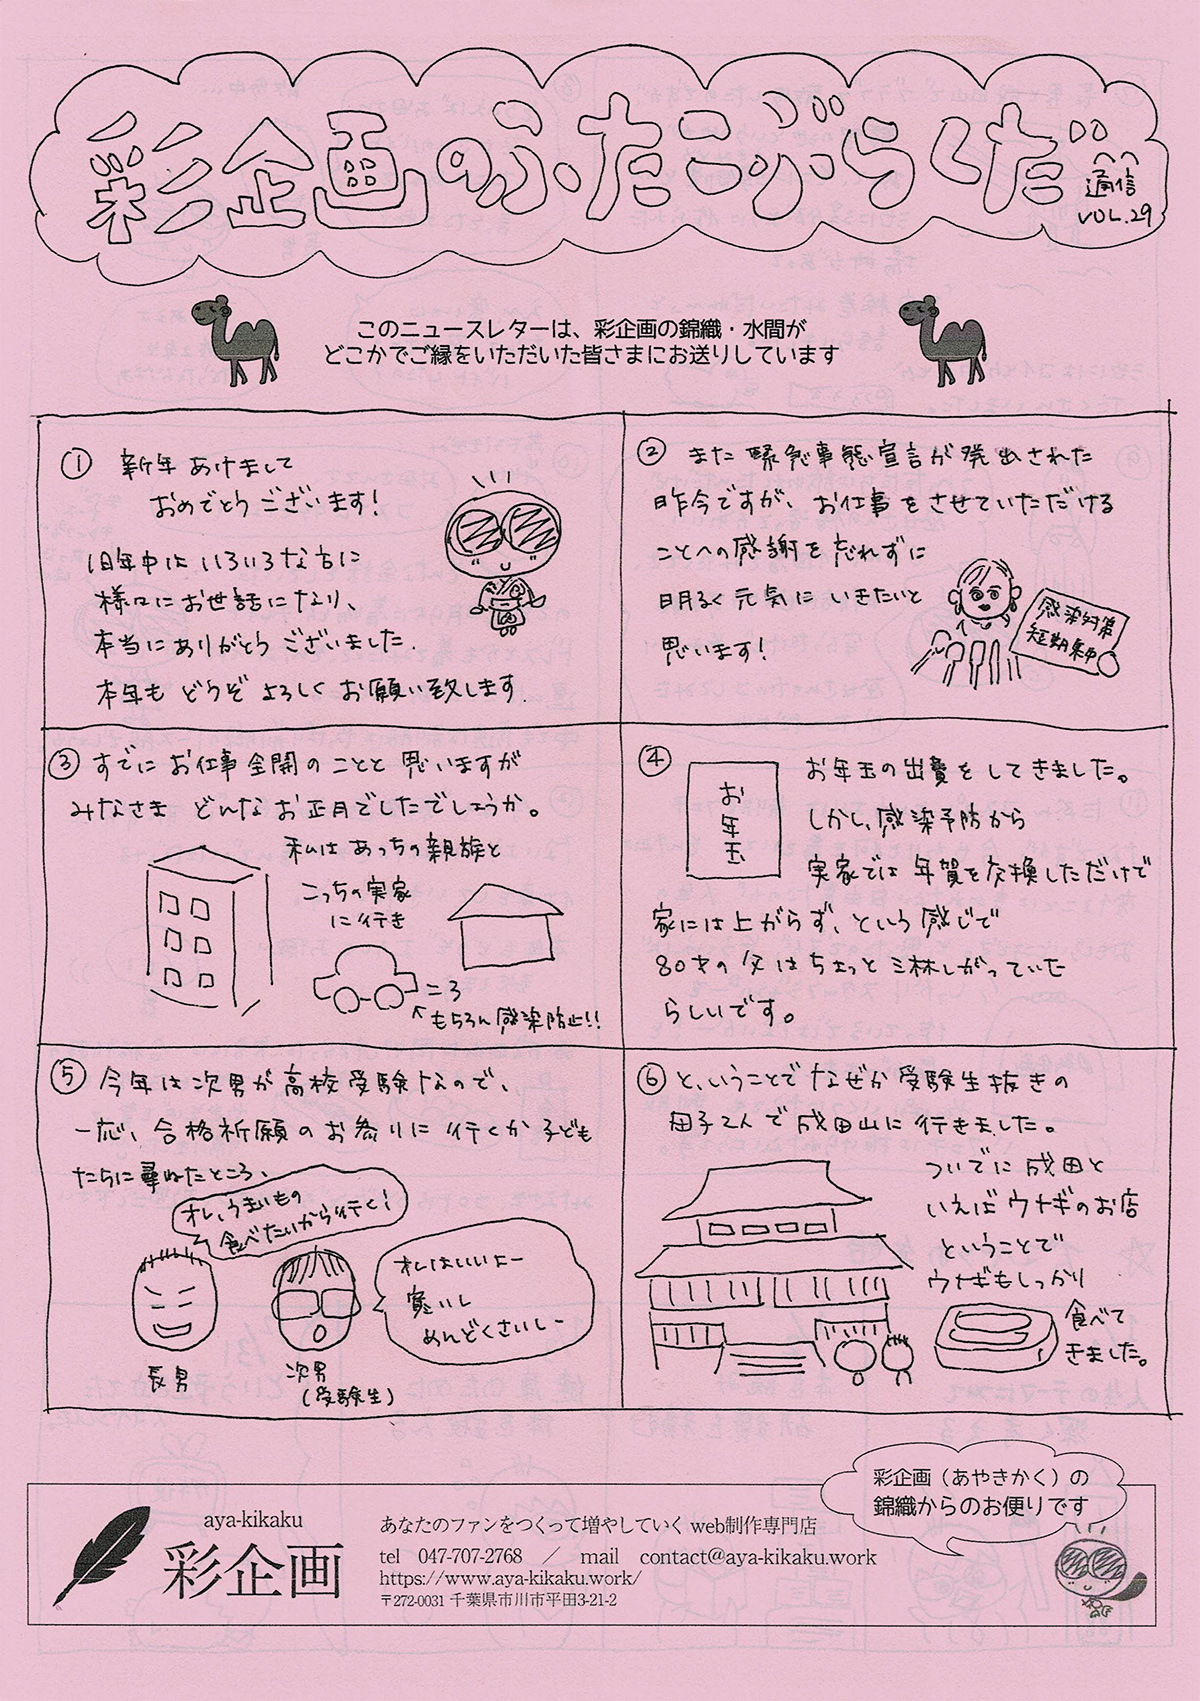 彩企画のふたこぶらくだ
通信
VOL.29
このニュースレターは、彩企画の錦織・水間が
どこかでご縁をいただいた皆さまにお送りしています
① 新年あけまして
おめでとうございます!
旧年中はいろいろな方に
様々にお世話になり、
本当にありがとうございました.
本年もどうぞよろしくお願い致します.
② また緊急事態宣言が発出された
昨今ですが、お仕事をさせていただける
ことへの感謝を忘れずに
明るく元気にいきたいと
思います!
感染対策
短期集中
③ すでにお仕事全開のことと思いますが
みなさまどんなお正月でしたでしょうか。
私はあっちの親族と
こっちの実家
に行き
もちろん感染防止!!
④ お年玉
お年玉の出費をしてきました。
しかし、感染予防から
実家では年賀を交換しただけで
家には上がらず、という感じで
80才の父はちょっと淋しがっていた
らしいです。
⑤ 今年は次男が高校受験なので、
一応、合格祈願のお参りに行くか子ども
たちに尋ねたところ、
オレ、うまいもの
食べたいから行く!
オレはいいよー
寒いし
めんどくさいしー
長男
次男
(受験生)
⑥ と、いうことでなぜか受験生抜きの
母子2人で成田山に行きました。
ついでに成田と
いえばウナギのお店
ということで
ウナギもしっかり
食べて
きました。
彩企画(あやきかく)の
錦織からのお便りです
aya-kikaku
彩企画
あなたのファンをつくって増やしていくweb制作専門店
tel 047-707-2768 / mail contact@aya-kikaku.work
https://www.aya-kikaku.work/
〒272-0031 千葉県市川市平田3-21-2